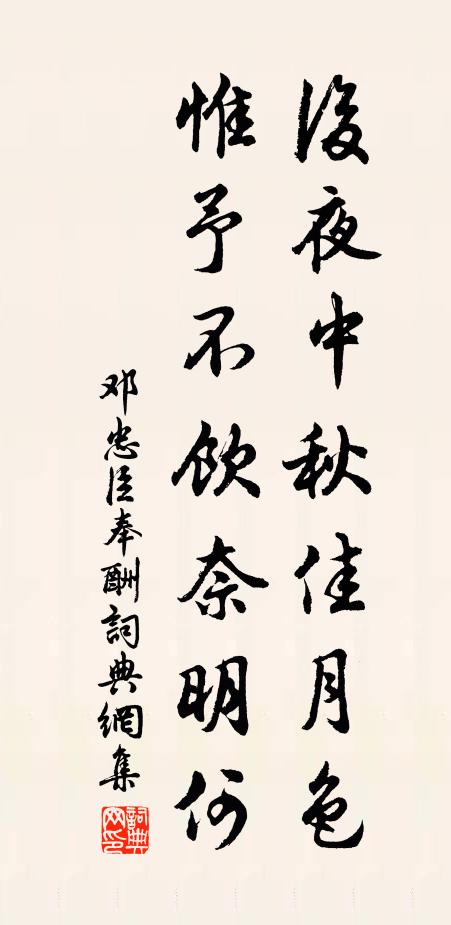 後夜中秋佳月色
惟予不飲奈明何
邓忠臣奉酬詞典網集
詞典
网印